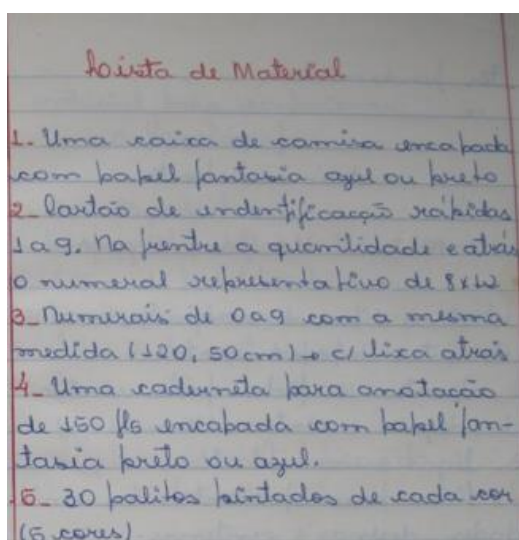 Loista de Material
1. Uma caixa de camisa encapada
com papel fantasia azul ou preto
2_ Cartão de indentificação rápidas
1 a 9. Na frente a quantidade e atrás
o numeral representativo de 8x12
3_ Numerais de 0 a 9 com a mesma
medida (120, 50 cm) → c/ lixa atrás
4_ Uma caderneta para anotação
de 150 fls encapada com papel fan-
tasia preto ou azul.
5_ 30 palitos pintados de cada cor
(5 cores)